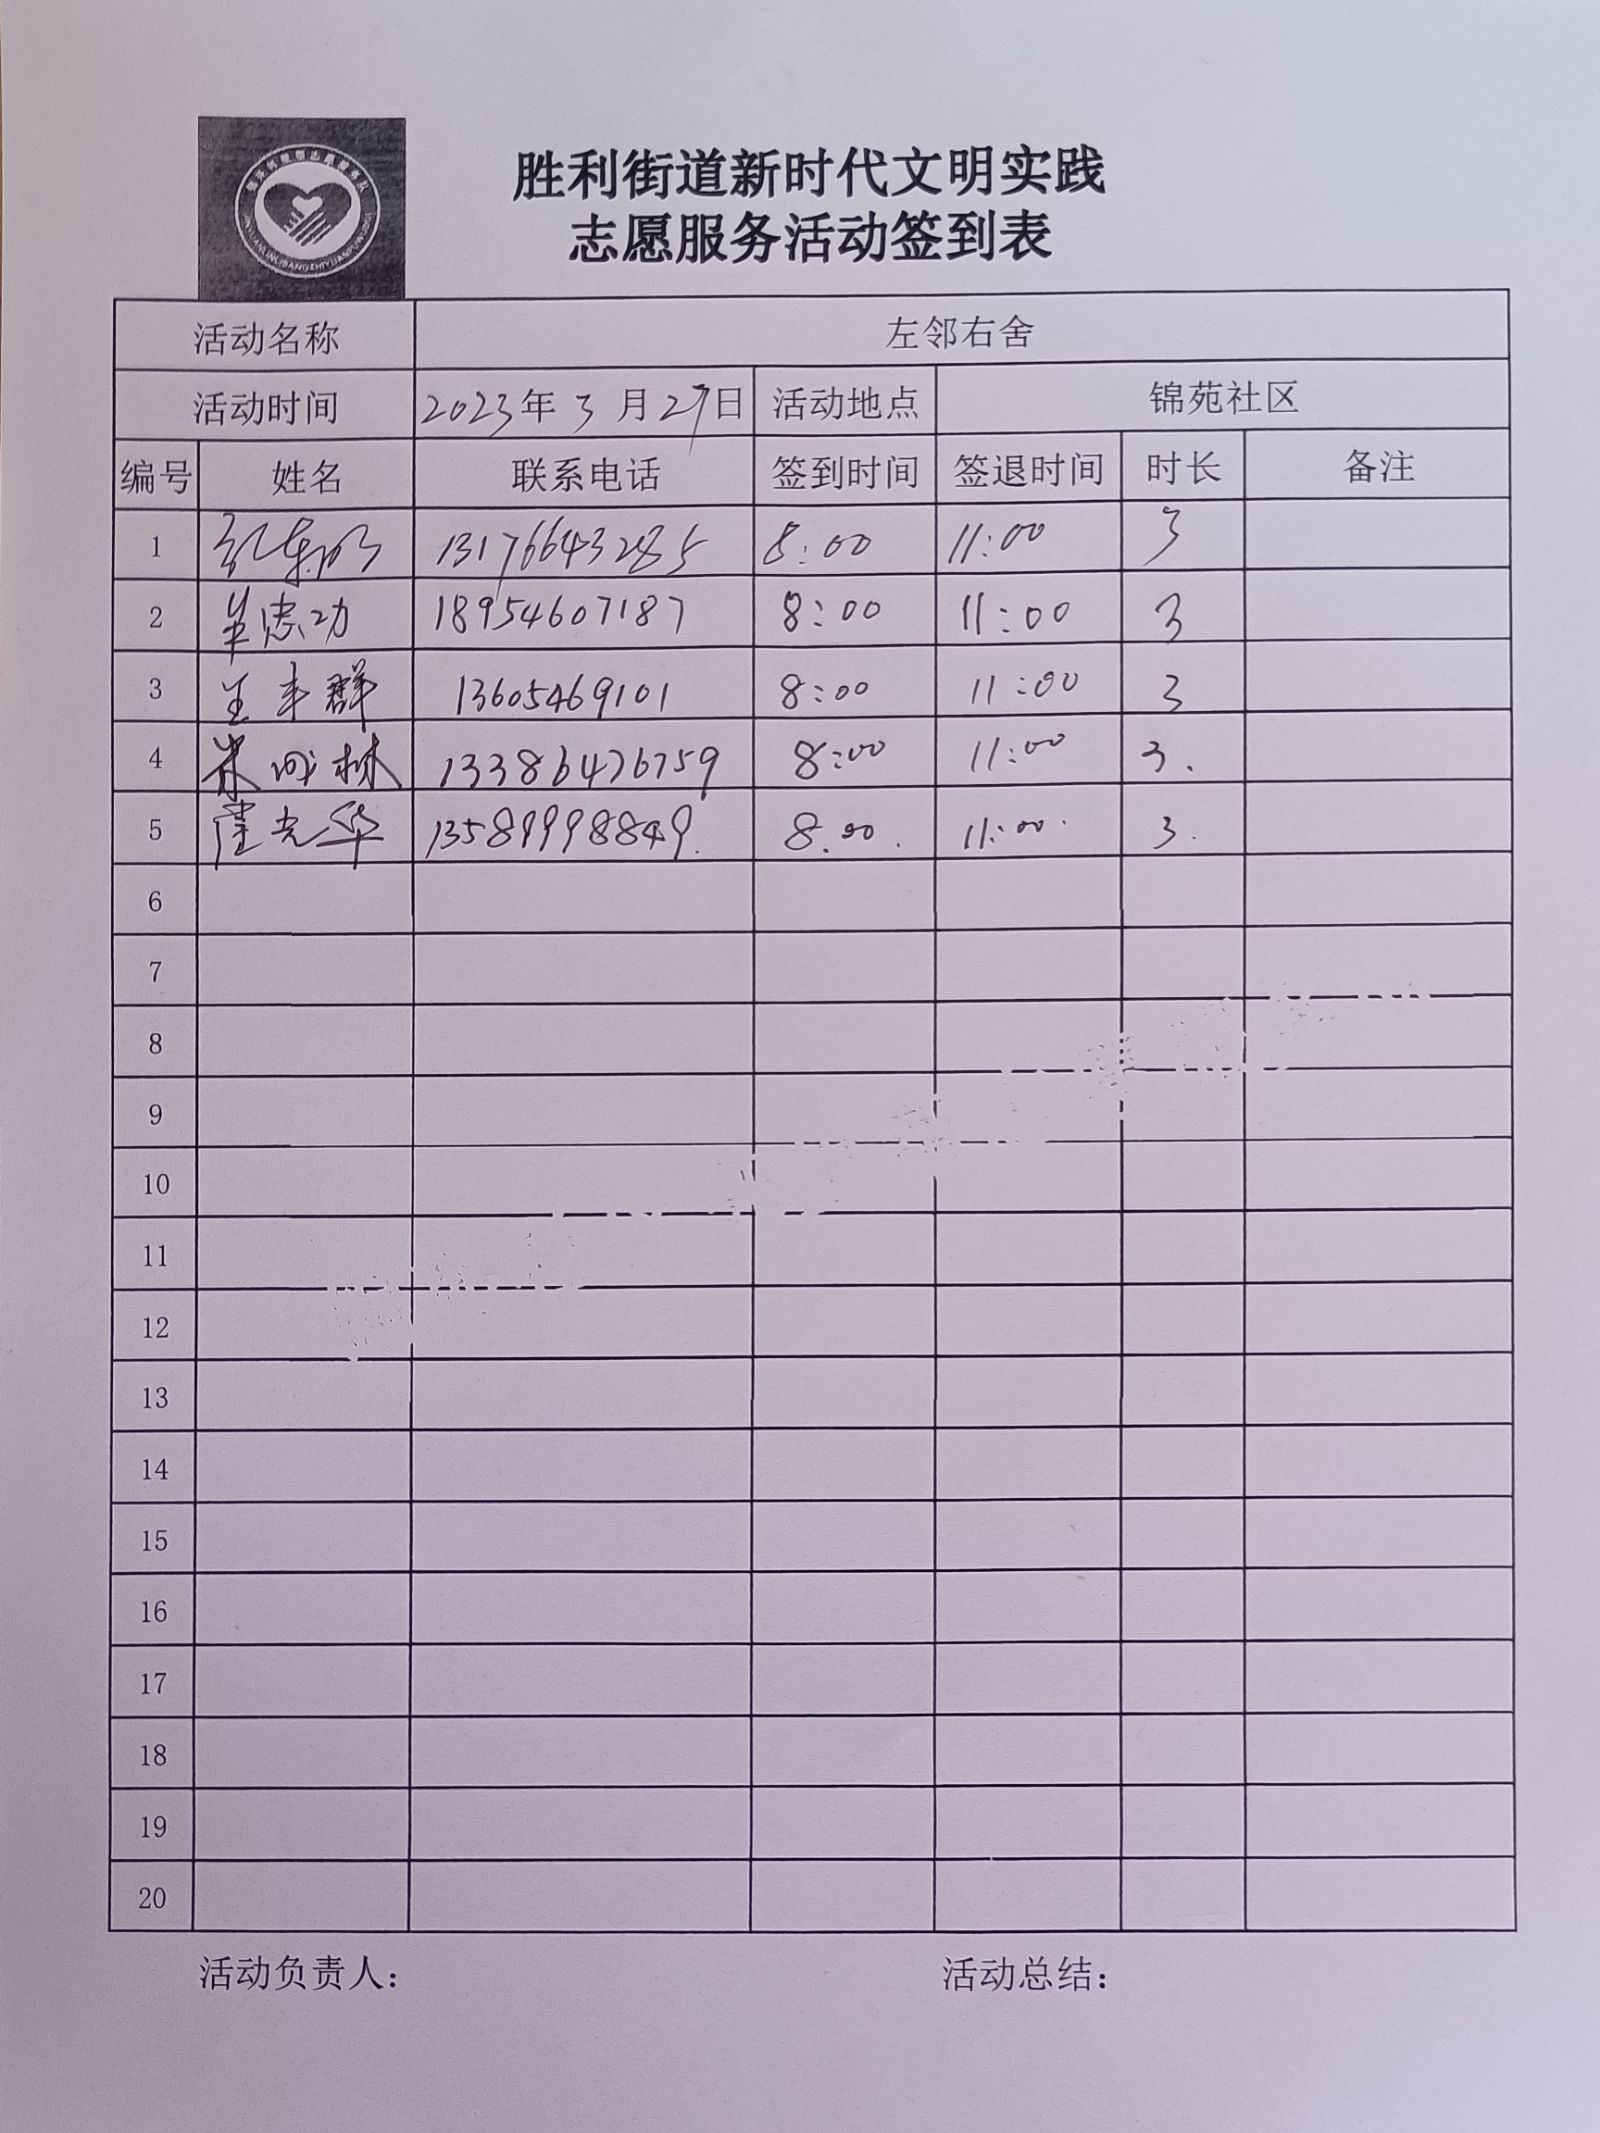 胜利街道新时代文明实践
志愿服务活动签到表
活动名称 左邻右舍
活动时间 2023年3月27日 活动地点 锦苑社区
编号 姓名 联系电话 签到时间 签退时间 时长 备注
1 13176643285 8:00 11:00 3
2 忠功 18954607187 8:00 11:00 3
3 王丰群 13605469101 8:00 11:00 3
4 林 13386476759 8:00 11:00 3.
5 光华 13589998849. 8.00. 11:00. 3.
6
7
8
9
10
11
12
13
14
15
16
17
18
19
20
活动负责人： 活动总结：